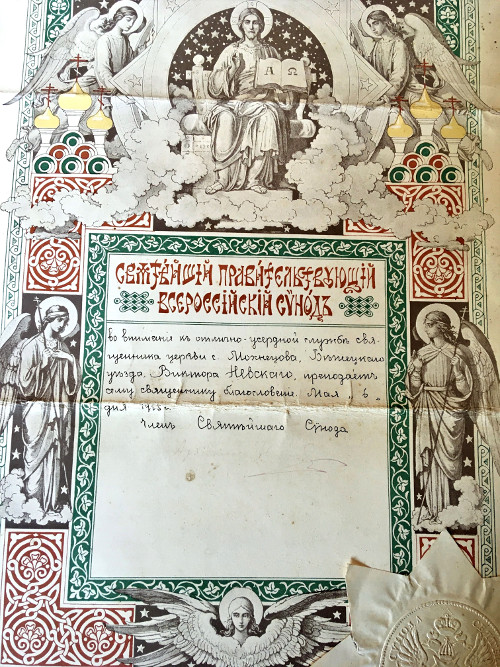 А Ω
СВѦТѢЙШІЙ ПРАВИТЕЛЬСТВУЮЩІЙ
ВСЕРОССІЙСКІЙ СѴНОДЪ
во вниманіи къ отлично-усердной службѣ свя-
щенника церкви с. Мохнецова, Бѣжецкаго
уѣзда, Виктора Невскаго, преподаетъ
сему священнику благословеніе. Мая 6 в
дня
Членъ Святѣйшаго Сѵнода